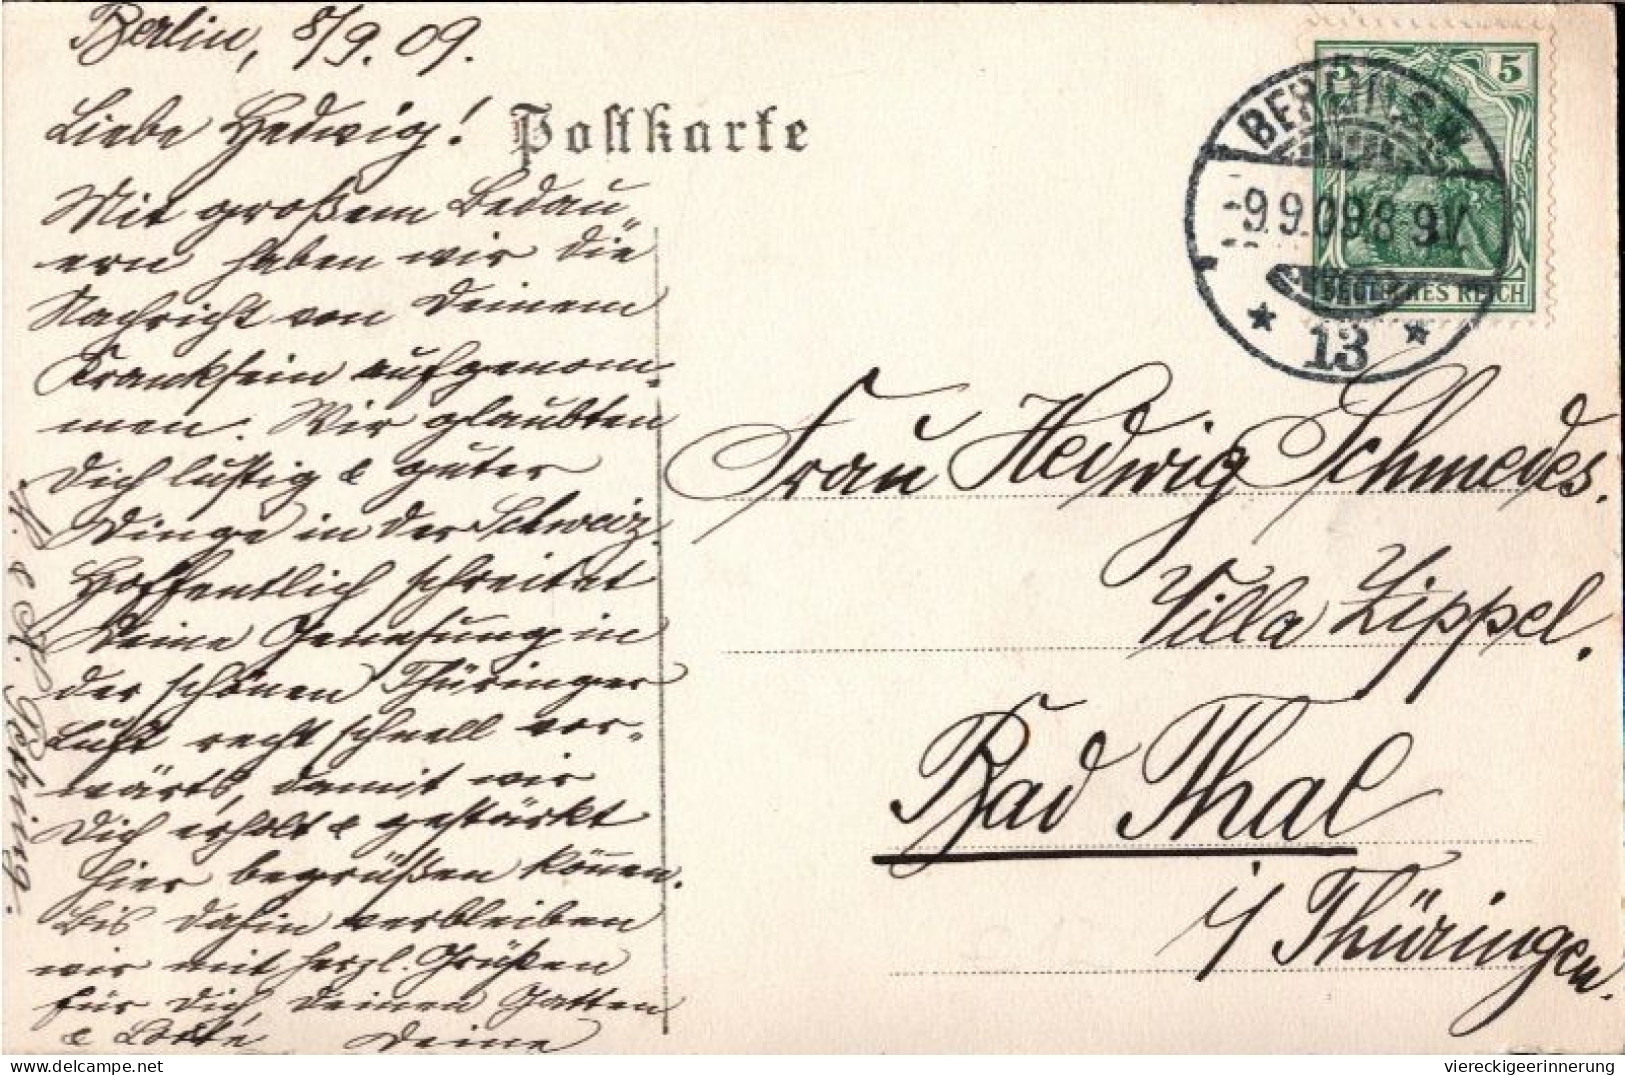 Berlin, 8/9. 09.
Liebe Hedwig!
Postkarte
Mit großem Bedau-
ern haben wir die
Nachricht von Deinem
Kranksein aufgenom-
men. Wir glaubten
Dich lustig & guter
Dinge in der Schweiz.
Hoffentlich schreitet
Deine Genesung in
der schönen Thüringer
Luft recht schnell vor-
wärts, damit wir
Dich erholt & gestärkt
hier begrüßen können.
Bis dahin verbleiben
wir mit herzl. Grüßen
für Dich, Deinen Gatten
& Deine
5 5
DEUTSCHES REICH
BERLIN S.W.
-9.9.09.8-9V.
* 13 *
Frau Hedwig Schmedes.
Villa Zippel.
Bad Thal
i/ Thüringen.
viereckigeerinnerung